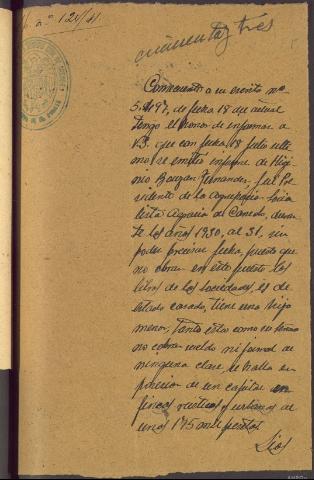 nº 124/41
cincuenta y tres
Contestando a su escrito nº
5.497, de fecha 18 del actual
tengo el honor de informar a
V.S. que con fecha 18 Julio ulti
mo se emitio informe de Higi
nio Bouzan Fernandez fué Pre
sidente de la Agrupación Socia
lista Agraria del Canedo, duran
te los años 1930, al 31, sin
poder precisar fecha, puesto que
no obran en este puesto los
libros de las sociedades, es de
estado casado, tiene una hija
menor, tanto estos como
no cobra sueldo ni jornal de
ninguna clase, se halla en
posesion de un capital en
fincas rusticas y urbanas de
unas 175 mil pesetas
Dios